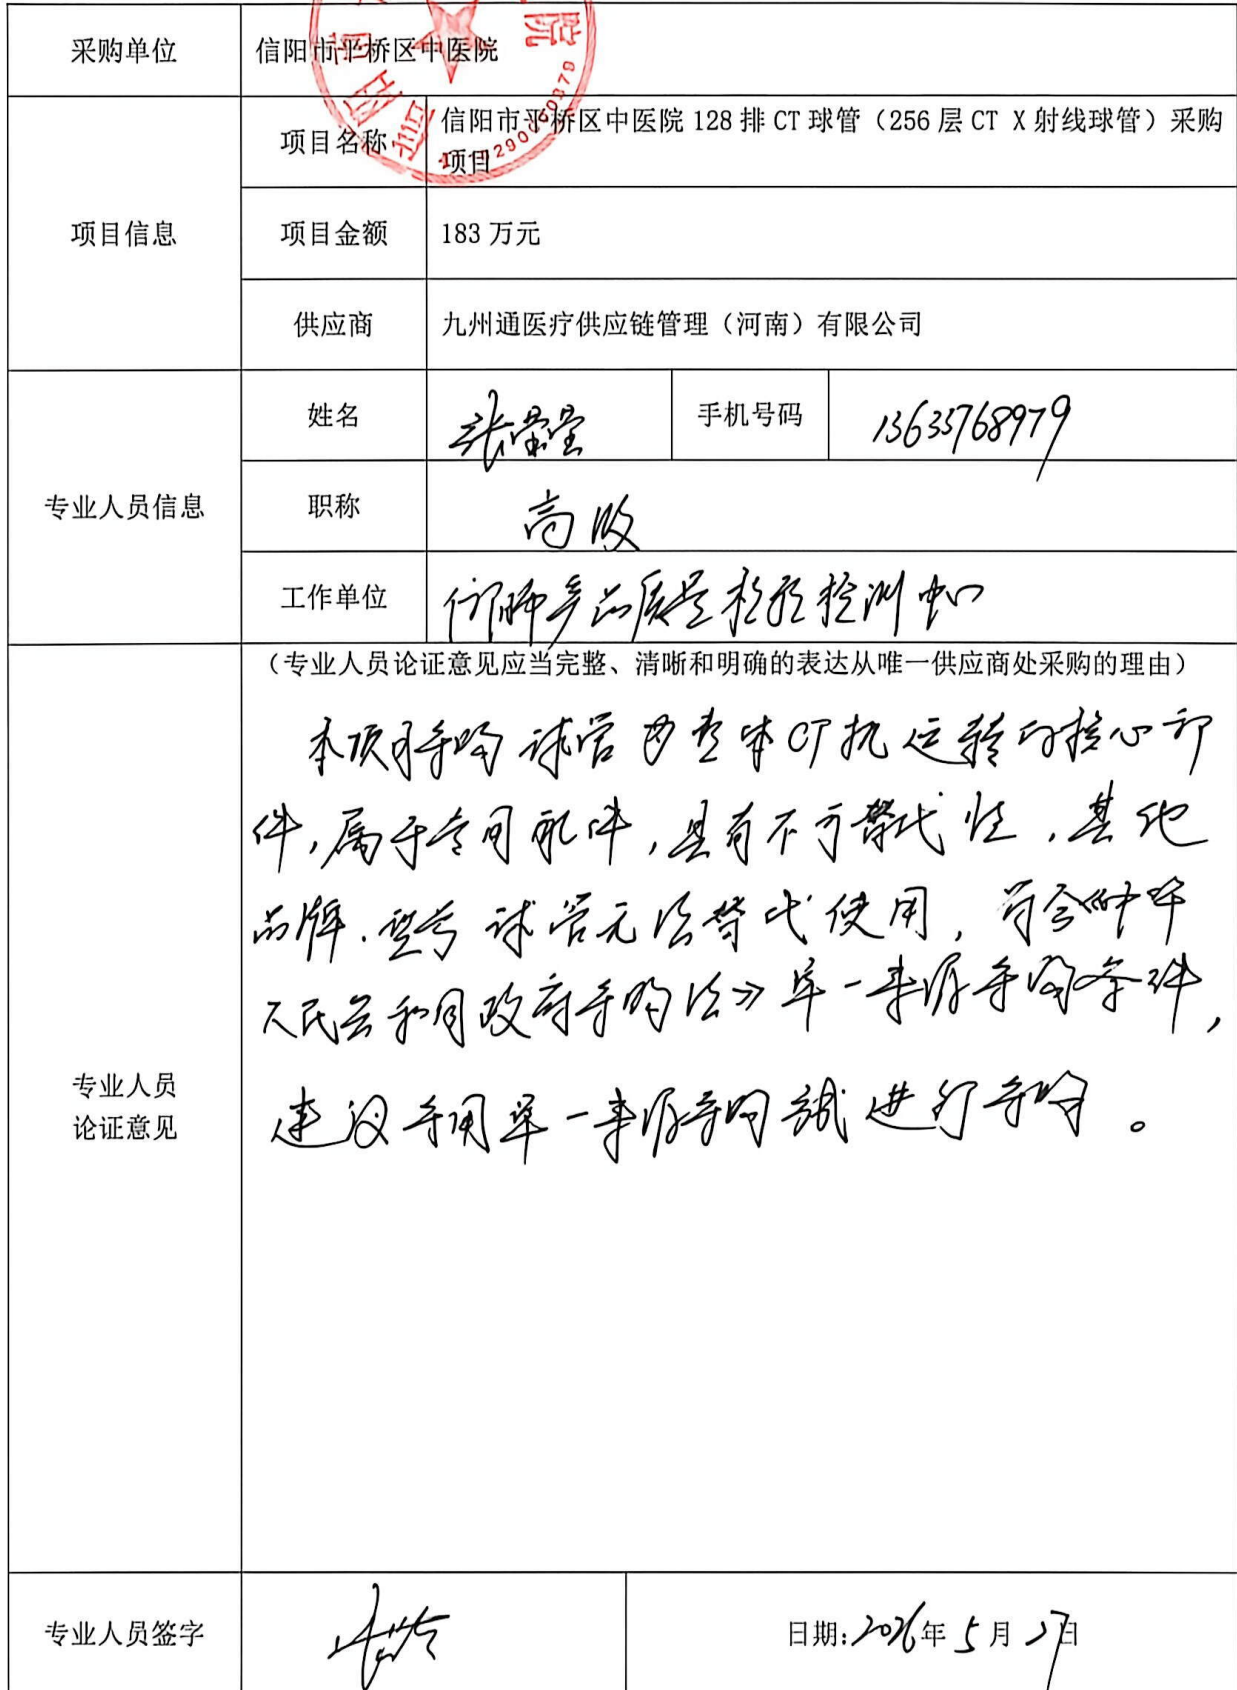 采购单位 信阳市平桥区中医院
项目信息
项目名称 信阳市平桥区中医院 128 排 CT 球管（256 层 CT X 射线球管）采购
项目
项目金额 183 万元
供应商 九州通医疗供应链管理（河南）有限公司
专业人员信息
姓名 张莹莹 手机号码 13633768979
职称 高级
工作单位 信阳市产品质量检验检测中心
专业人员
论证意见
（专业人员论证意见应当完整、清晰和明确的表达从唯一供应商处采购的理由）
本项目采购球管为整体CT机运转的核心部
件，属于专用配件，具有不可替代性，其他
品牌、型号球管无法替代使用，符合《中华
人民共和国政府采购法》单一来源采购条件，
建议采用单一来源采购方式进行采购。
专业人员签字 日期:2026年5月27日